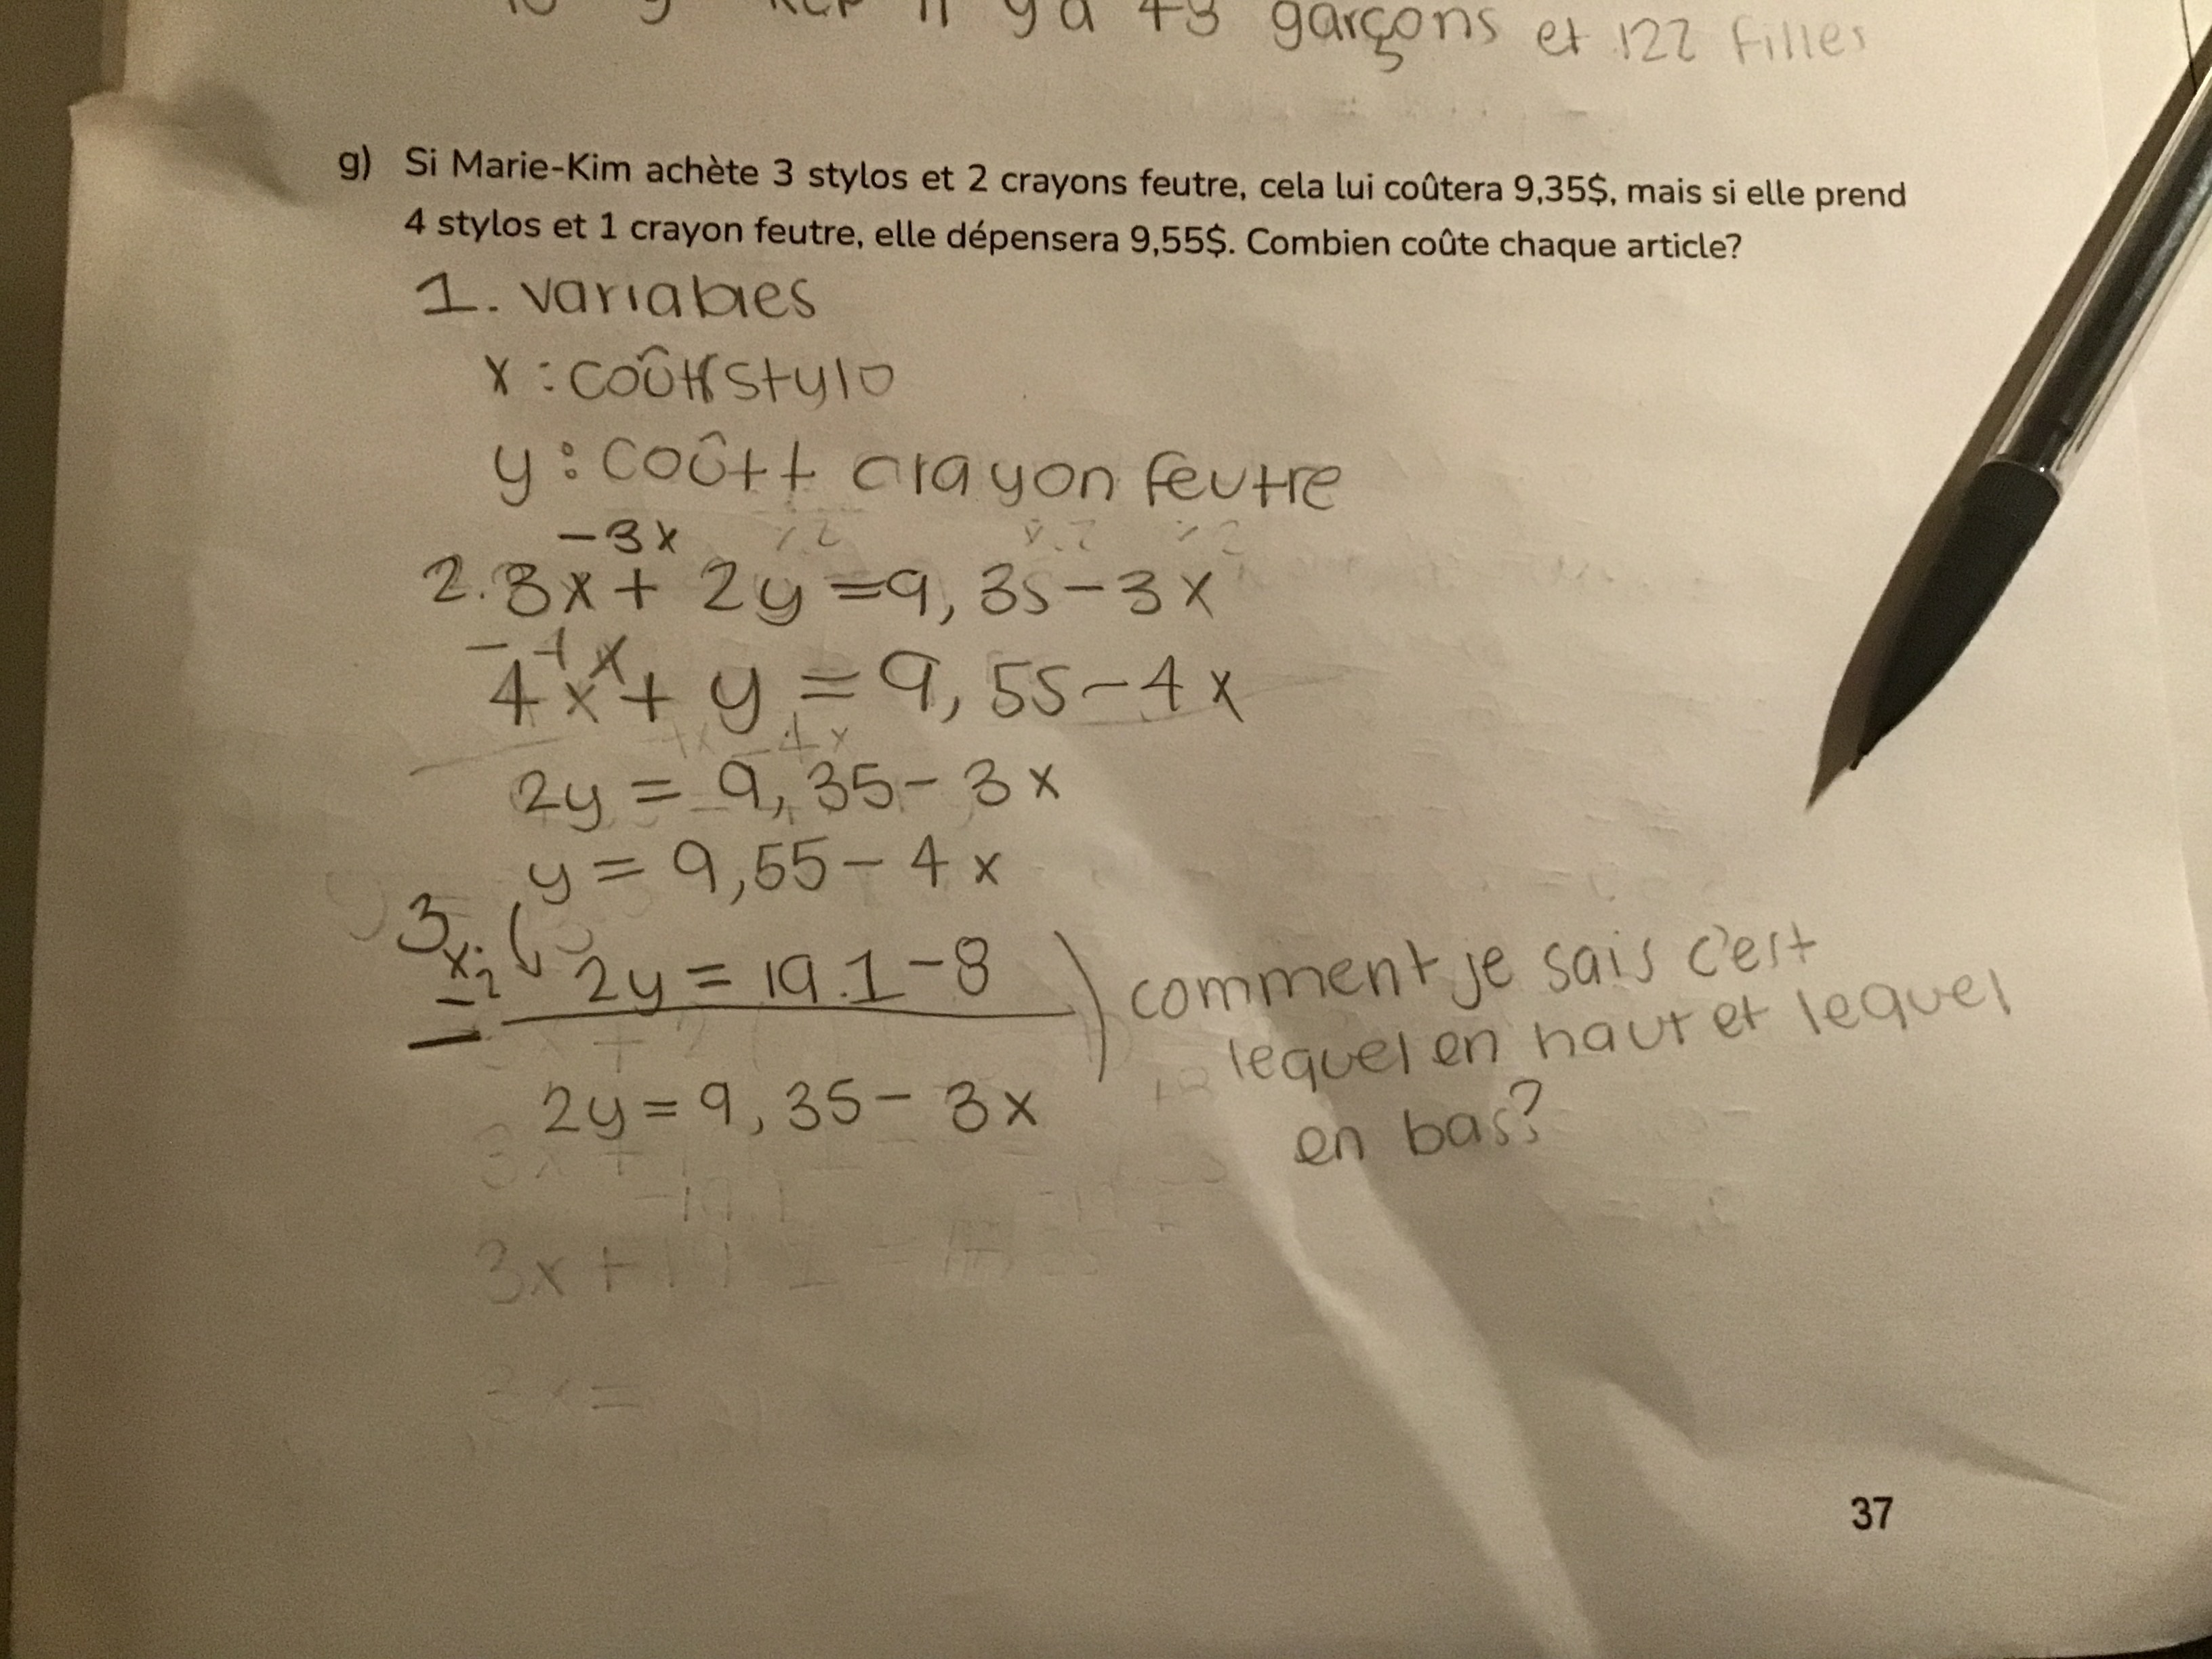 y a 43 garçons et 122 filles
g) Si Marie-Kim achète 3 stylos et 2 crayons feutre, cela lui coûtera 9,35$, mais si elle prend
4 stylos et 1 crayon feutre, elle dépensera 9,55$. Combien coûte chaque article?
1. variables
x : coût stylo
y : coûtt crayon feutre
-3x
2. 3x + 2y = 9,35 - 3x
-4x
4x + y = 9,55 - 4x
2y = 9,35 - 3x
y = 9,55 - 4x
3.
x2 2y = 19.1 - 8
comment je sais c'est
lequel en haut et lequel
en bas?
2y = 9,35 - 3x
3x +
37